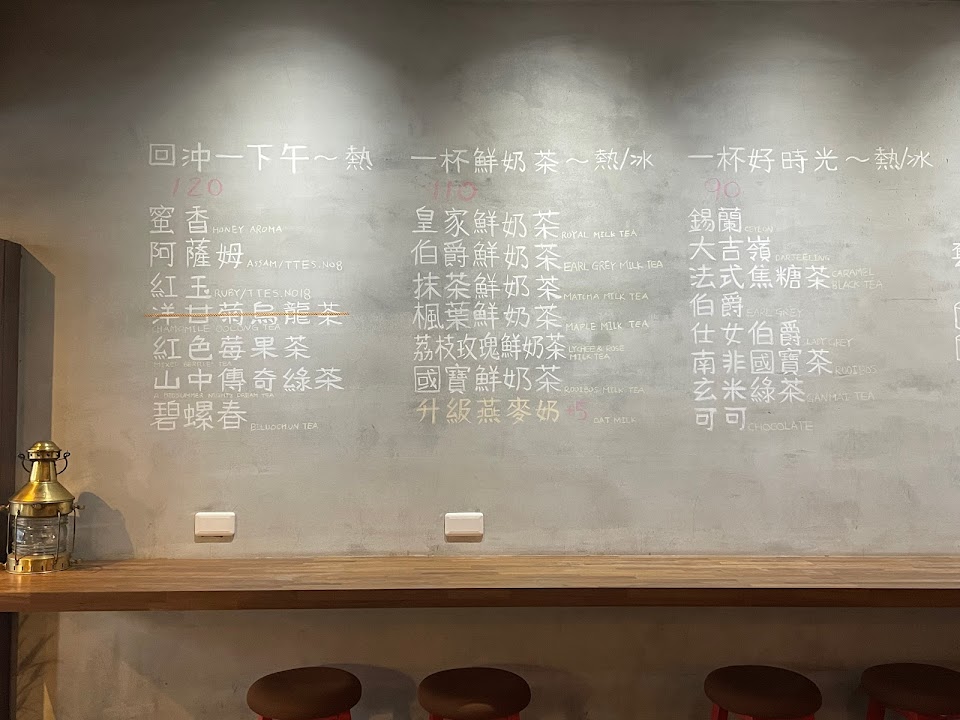 回沖一下午～熱
120
蜜香 HONEY AROMA
阿薩姆 ASSAM/TTES.NO8
紅玉 RUBY/TTES.NO18
洋甘菊烏龍茶
CHAMOMILE OOLONG TEA
紅色莓果茶
山中傳奇綠茶
A MIDSUMMER NIGHT'S DREAM TEA
碧螺春 BILUOCHUN TEA
一杯鮮奶茶～熱/冰
110
皇家鮮奶茶 ROYAL MILK TEA
伯爵鮮奶茶 EARL GREY MILK TEA
抹茶鮮奶茶 MATCHA MILK TEA
楓葉鮮奶茶 MAPLE MILK TEA
荔枝玫瑰鮮奶茶 LYCHEE & ROSE MILK TEA
國寶鮮奶茶 ROOIBOS MILK TEA
升級燕麥奶 OAT MILK
一杯好時光～熱/冰
90
錫蘭
大吉嶺
法式焦糖茶 CARAMEL BLACK TEA
伯爵 EARL GREY
仕女伯爵 LADY GREY
南非國寶茶 ROOIBOS
玄米綠茶 GANMAI TEA
可可 CHOCOLATE